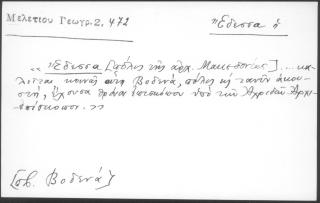 Μελετίου Γεωγρ. 2, 472
Ἔδεσσα ἡ
,, Ἔδεσσα [πόλις τῆς ἀρχ. Μακεδονίας] ... κα-
λεῖται κοινῶς αὕτη Βοδενά, πόλις καὶ τανῦν ἀκου-
στή, ἔχουσα θρόνον ἐπισκόπου ὑπὸ τὸν Ἀχριδῶν Ἀρχι-
επίσκοπον. ,,
[σβ. Βοδενά]